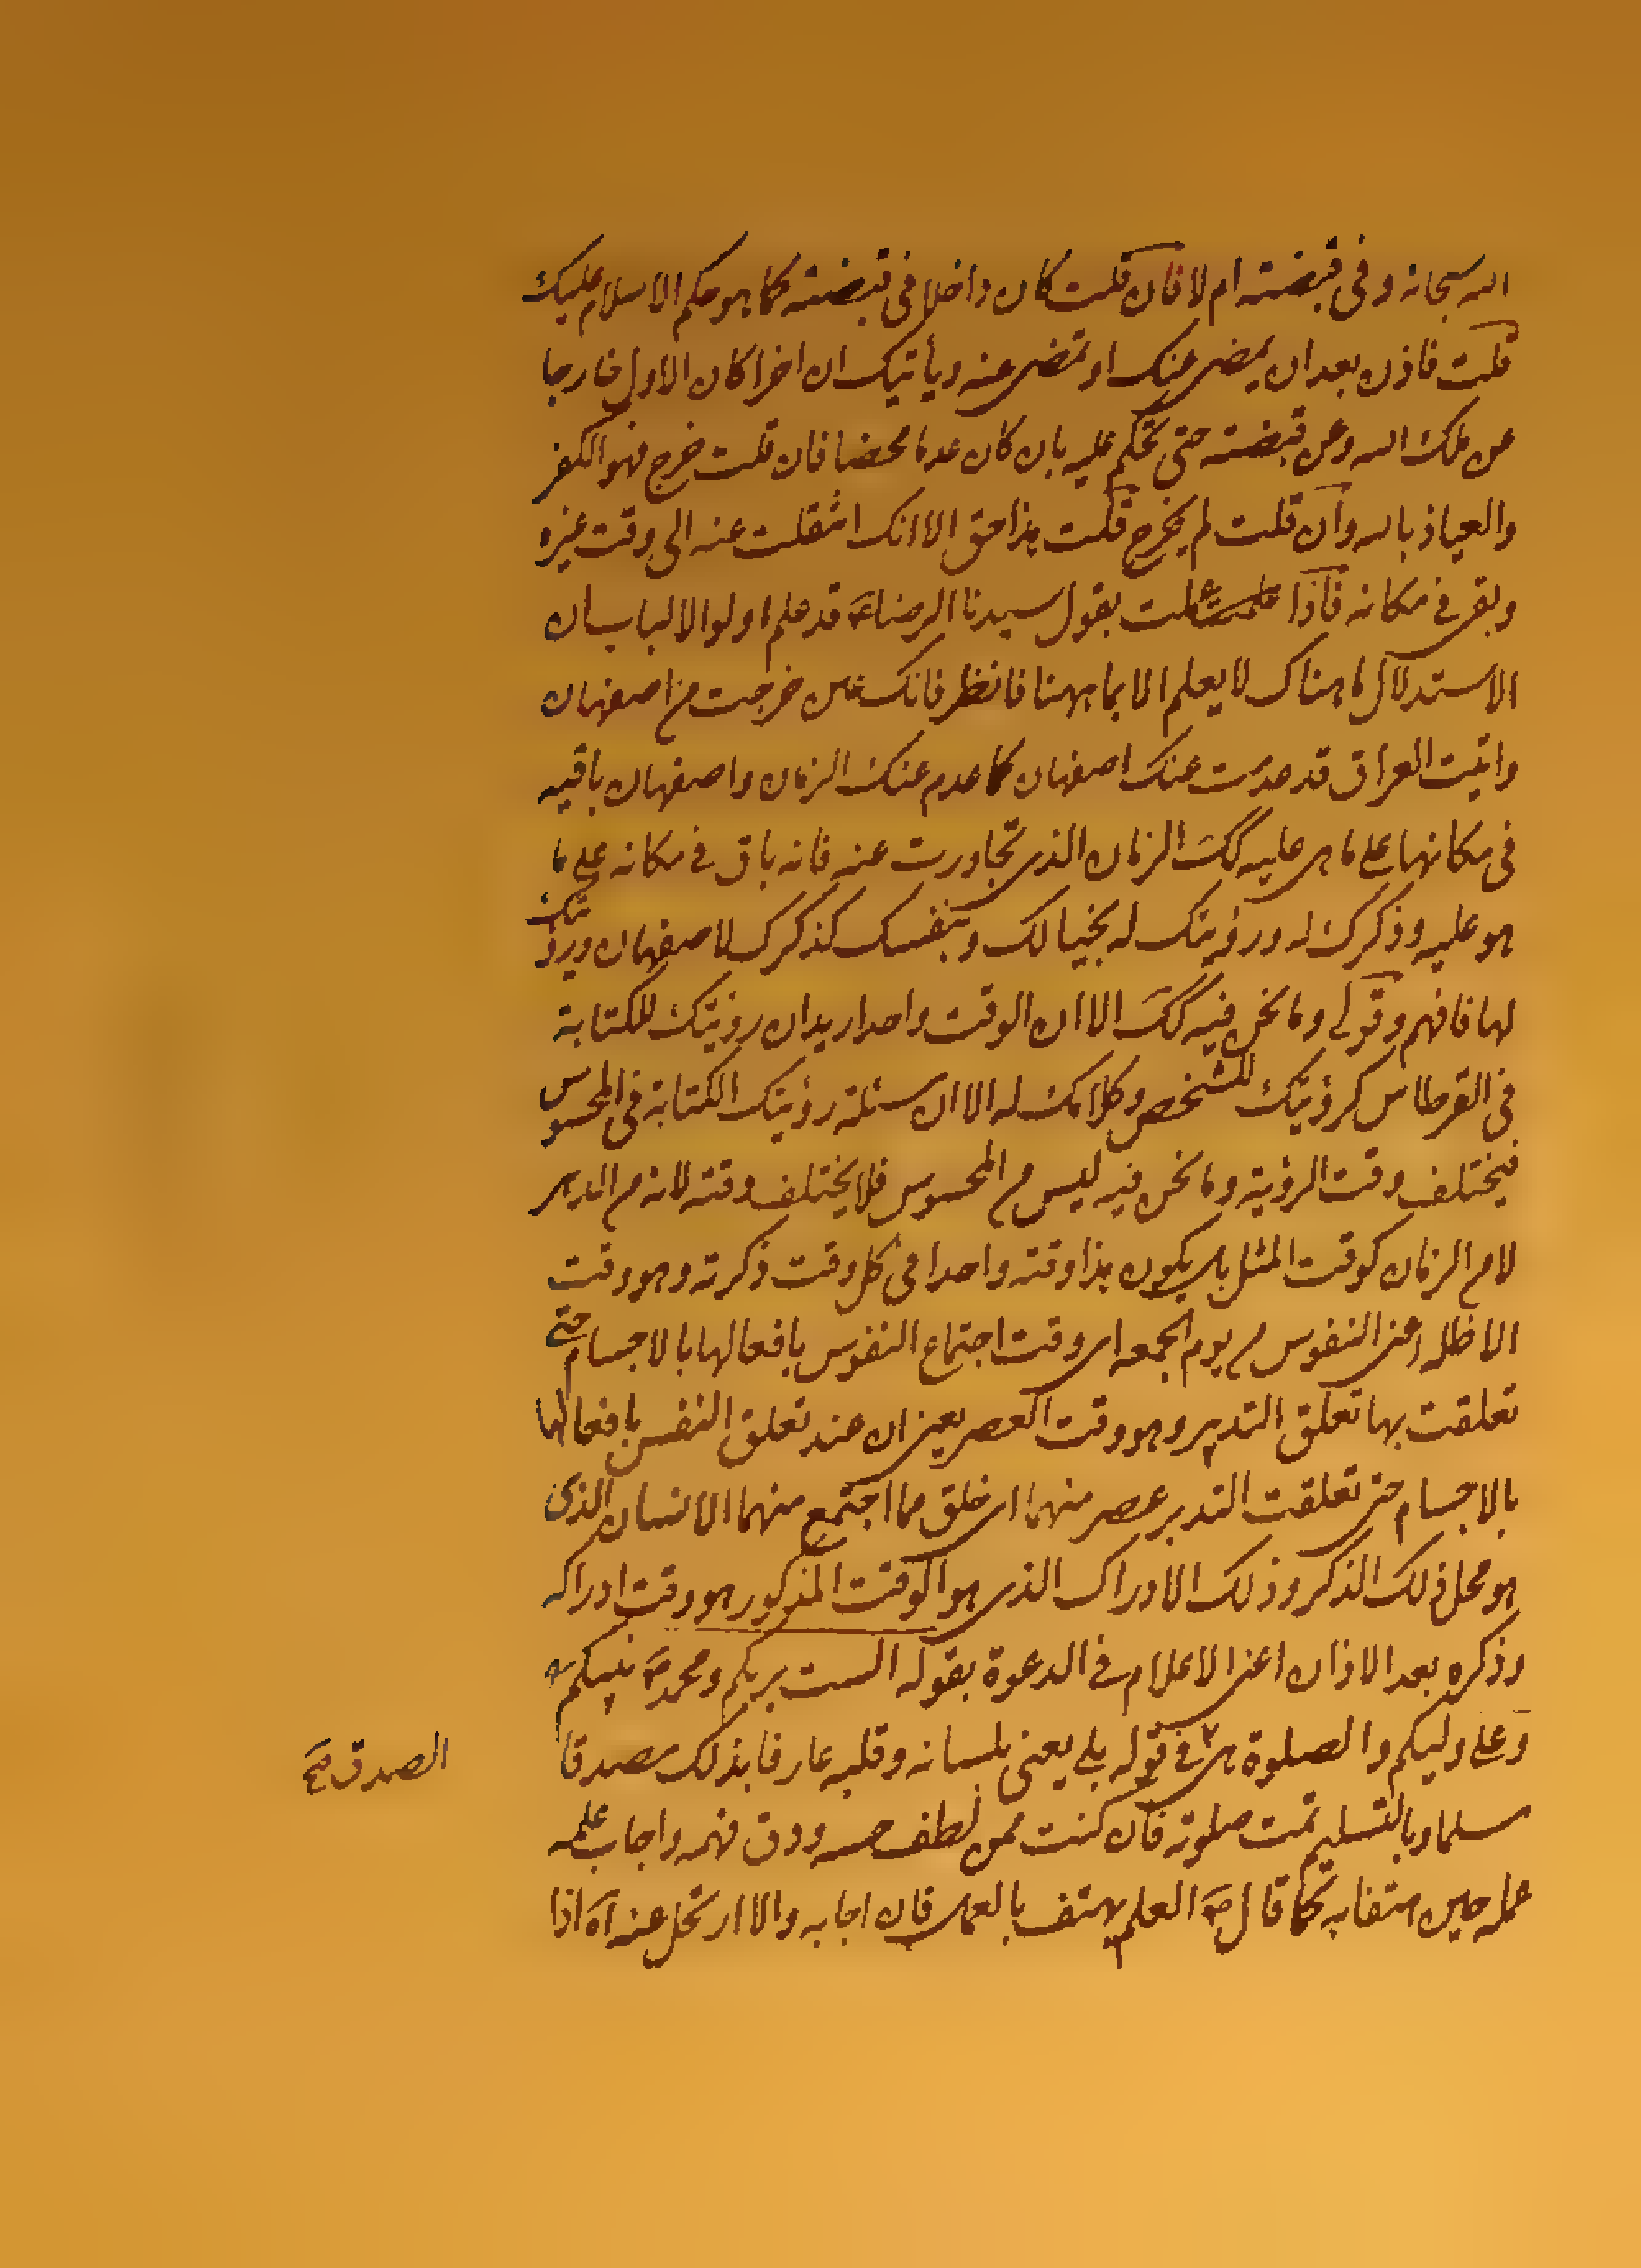 الله سبحانه و فى قبضته ام لا فان قلت كان داخلا فى قبضته كما هو حكم الاسلام عليك
قلت فاذن بعد ان يمضى عنك او تمضى عنه و يأتيك ان اخر اكان الاول خارجا
عن ملك الله و عن قبضته حتى تحكم عليه بان كان عدما محضا فان قلت خرج فهو الكفر
والعياذ بالله و ان قلت لم يخرج قلت هذا حق الا انك انتقلت عنه الى وقت غيره
و بقى فى مكانه فاذا عملت بقول سيدنا الرضا ع قد علم اولوا الالباب ان
الاستدلال ما هناك لا يعلم الا بما ههنا فانظر فانك حين خرجت من اصفهان
و اتيت العراق قد عدمت عنك اصفهان كما عدم عنك الزمان و اصفهان باقيه
فى مكانها على ما هى عليه كك الزمان الذى تجاورت عنه فانه باق فى مكانه على ما
هو عليه و ذكرك له و رؤيتك له بخيالك و بنفسك كذكرك لاصفهان و رؤيتك
لها فافهم و قولى و ما نحن فيه كك الا ان الوقت واحد اريد ان رؤيتك للكتابة
فى القرطاس كرؤيتك للشخص و كلامك له الا ان مسئلة رؤيتك الكتابة فى المحسوس
فيختلف وقت الرؤية و ما نحن فيه ليس من المحسوس فلا يختلف وقته لانه من الدهر
لا من الزمان كوقت المثل بل يكون هذا وقته واحدا فى كل وقت ذكرته و هو وقت
الاظله اعنى النفوس من يوم الجمعه اى وقت اجتماع النفوس بافعالها بالاجسام حتى
تعلقت بها تعلق التدبير و هو وقت العصر يعنى ان عند تعلق النفس بافعالها
بالاجسام حتى تعلقت التدبير عصر منهما اى خلق مما اجتمع منهما الانسان الذى
هو محل ذلك الذكر و ذلك الادراك الذى هو الوقت المذكور هو وقت ادراكه
و ذكره بعد الاذان اعنى الاعلام فى الدعوة بقوله الست بربكم و محمد ص نبيكم
و على وليكم و الصلوة هى فى قوله بلى يعنى بلسانه و قلبه عارفا بذلك مصدقا
مسلما و بالتسليم تمت صلوته فان كنت ممن لطف حسه و دق فهمه و اجاب علمه
عمله حين هتف به كما قال ص العلم يهتف بالعمل فان اجابه و الا ارتحل عنه اه اذا
الصدق ص